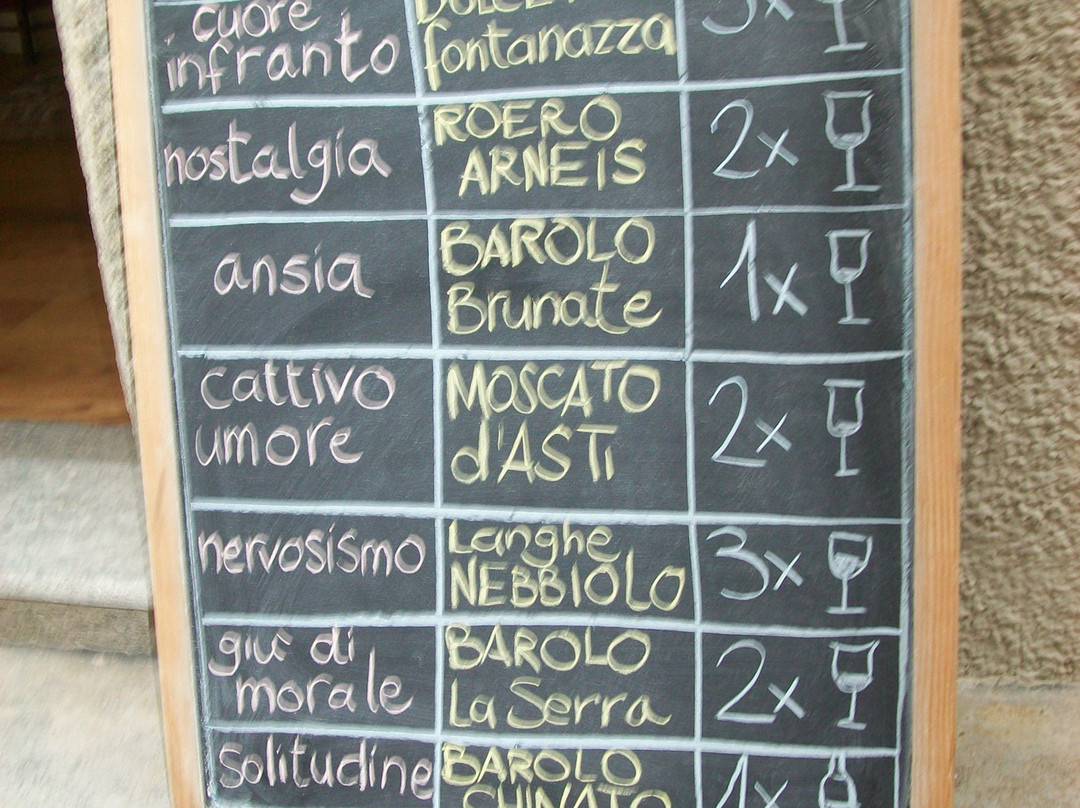 cuore
infranto
DOLCETTO
fontanazza
3x
nostalgia
ROERO
ARNEIS
2x
ansia
BAROLO
Brunate
1x
cattivo
umore
MOSCATO
d'ASTi
2x
nervosismo
Langhe
NEBBIOLO
3x
giù di
morale
BAROLO
La Serra
2x
solitudine
BAROLO
CHINATO
1x